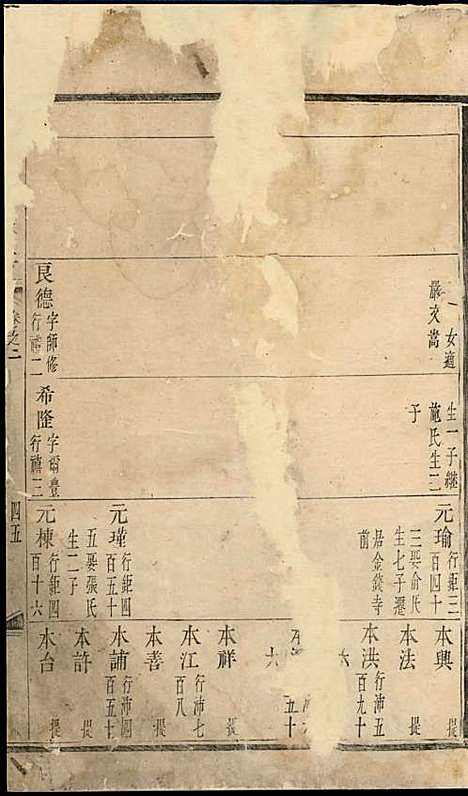 一女適
嚴文嵩
良德 字師修
行 二
生一子繼
施氏生二
子
希隆 字爾豊
行 二
元瑜 行鉅三
百四十
三娶俞氏
生七子遷
居金錢寺
前
元瑾 行鉅四
百五十
五娶張氏
生二子
元棟 行鉅四
百十六
本興 提
本法 提
本洪 行沛五
百九十
六
本
五十
六
本祥 提
本江 行沛七
百八 提
本善 提
本誧 行沛四
百五十 提
本許 提
本台 提
卷之二
四五